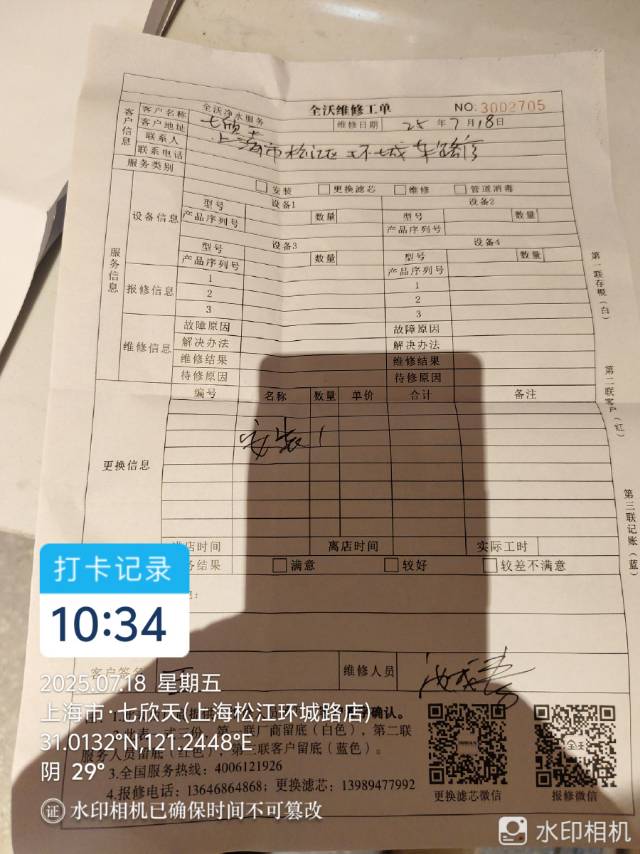 全沃净水服务 全沃维修工单 NO:3002705
客户信息
客户名称 七欣天 维修日期 25 年 7 月 18 日
客户地址 上海市松江区环城车路店
联系人
联系电话
服务类别 安装 更换滤芯 维修 管道消毒
服务信息
设备信息 设备1 设备2
型号 数量 型号 数量
产品序列号 产品序列号
设备3 设备4
型号 数量 型号 数量
产品序列号 产品序列号
报修信息 1 1
2 2
3 3
维修信息 故障原因 故障原因
解决办法 解决办法
维修结果 维修结果
待修原因 待修原因
更换信息 编号 名称 数量 单价 合计 备注
安装 1
店时间 离店时间 实际工时
务结果 满意 较好 较差不满意
客户签名 维修人员
第一联存根(白)
第二联客户(红)
第三联记账(蓝)
确认。
一式三份,第一联厂商留底(白色),第二联
服务人员留底(红色),第三联客户留底(蓝色)。
3.全国服务热线:4006121926
4.报修电话:13646864868;更换滤芯:13989477992
更换滤芯微信 报修微信
全沃
打卡记录
10:34
2025.07.18 星期五
上海市·七欣天(上海松江环城路店)
31.0132°N,121.2448°E
阴 29°
证 水印相机已确保时间不可篡改
水印相机